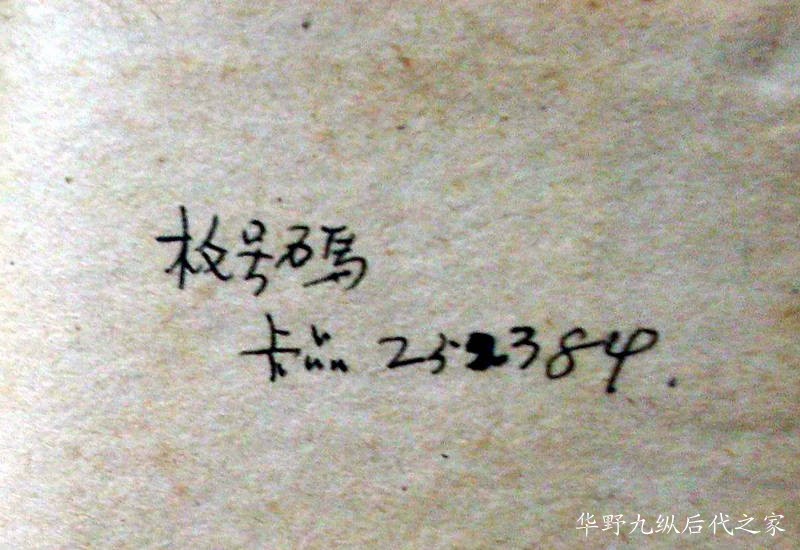 枚号碼
卡品 252384.
华野九纵后代之家